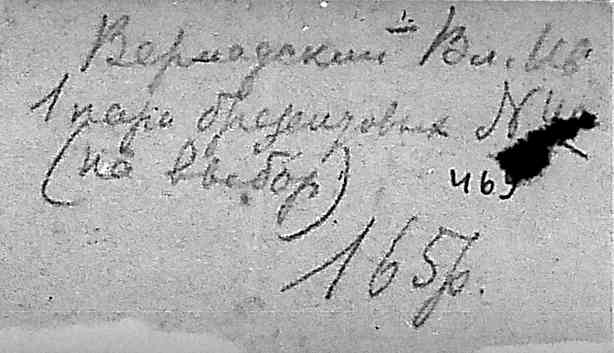 Вернадский Вл. Ив
1 пара брезентовых N
(на выбор)
165р.